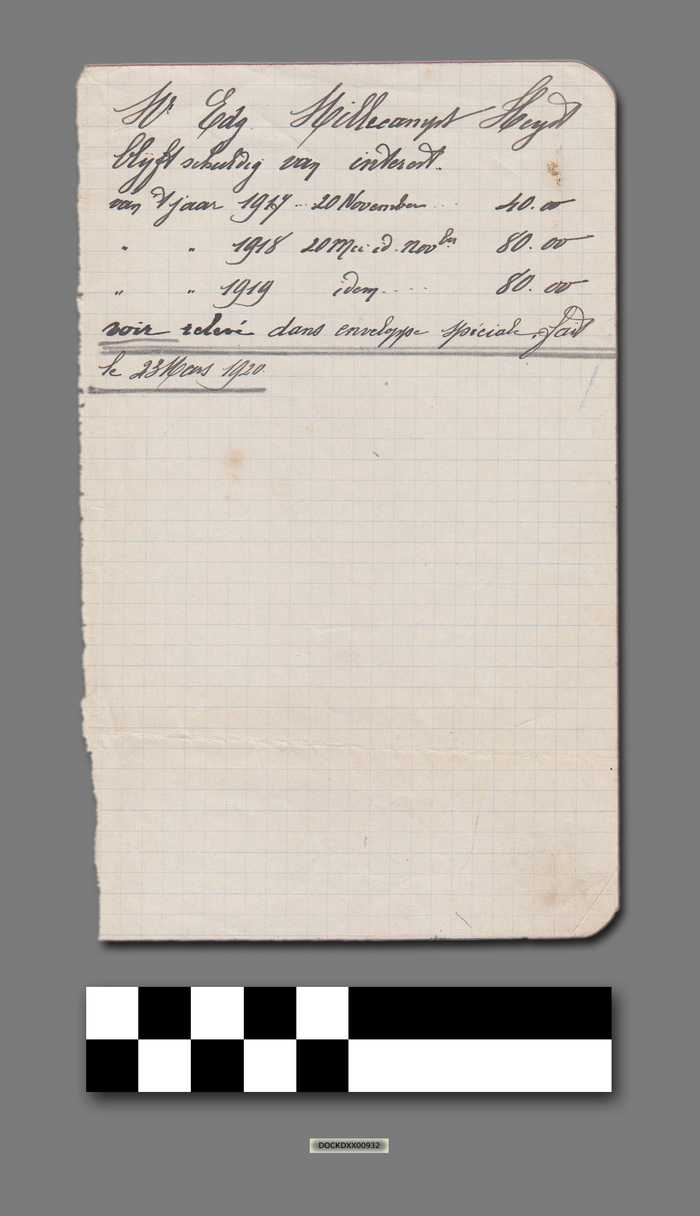 Mr Edg. Millecampt Heyst
blijft schuldig van interest.
van 't jaar 1917 .. 20 November .... 40.00
" " 1918 20 Mei id. Novber 80.00
" " 1919 idem..... 80.00
voir relevé dans enveloppe speciale. fait
le 23 Mars 1920.
DOCKDXX00932